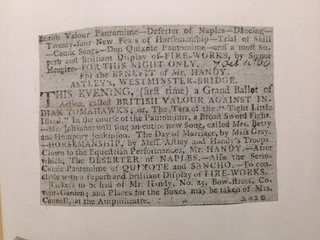 British Valour Pantomime—Deserter of Naples—Dancing—
Twenty-four New Feats of Horsemanship—Trial of Skill
—Comic Songs—Don Quixote Pantomime—and a most Su-
perb and brilliant Display of FIRE-WORKS, by Signor
Hengler—FOR THIS NIGHT ONLY.
For the BENEFIT of Mr. HANDY.
ASTLEY's, WESTMINSTER-BRIDGE.
THIS EVENING, (first time) a Grand Ballet of
Action, called BRITISH VALOUR AGAINST IN-
DIAN TOMAHAWKS; or, The Tars of the "Tight Little
Island." In the course of the Pantomime, a Broad Sword Fight.
—Mr. Johannot will sing an entire new Song, called Mrs. Betty
and Humphry Jenkinson. The Day of Marriage, by Miss Gray.
—HORSEMANSHIP, by Mess. Astley and Handy's Troops
Clown to the Equestrian Performances, Mr. HANDY.—After
which, The DESERTER of NAPLES.—Also the Serio-
Comic Pantomime of QUIXOTE and SANCHO. To con-
clude with a superb and brilliant Display of FIRE-WORKS.
Tickets to be had of Mr. Handy, No. 25, Bow-street, Co-
vent-Garden; and Places for the Boxes may be taken of Mrs.
Connell, at the Amphitheatre.